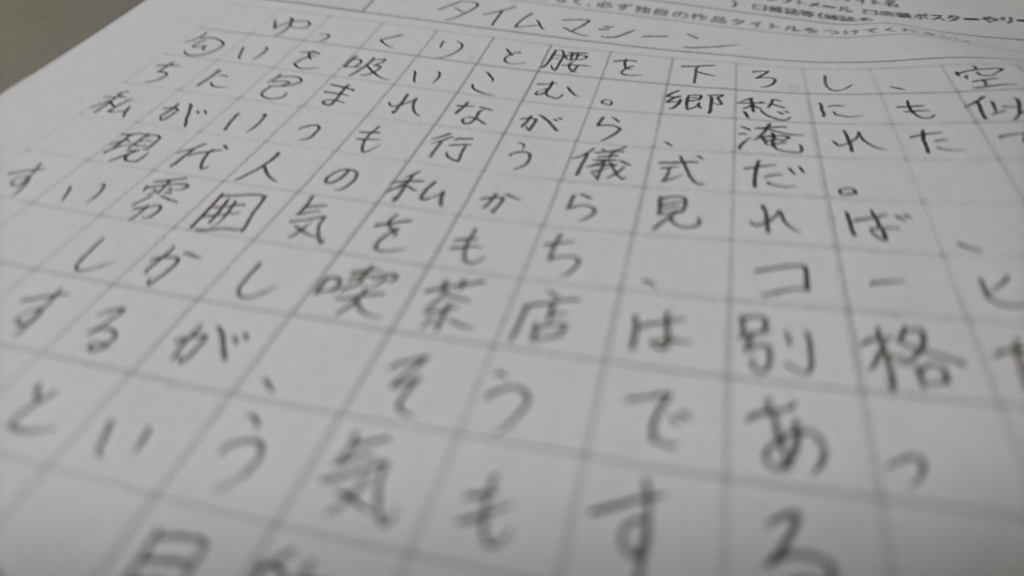 必ず独自の作品タイトルをつけてくだ
タイムマシーン
ゆっくりと腰を下ろし、空
匂いを吸いこむ。郷愁にも似
ちに包まれながら、淹れたて
私がいつも行う儀式だ。
現代人の私から見れば、
すい雰囲気をもち、コーヒ
しかし喫茶店は別格
するが、そうであっ
という気もする